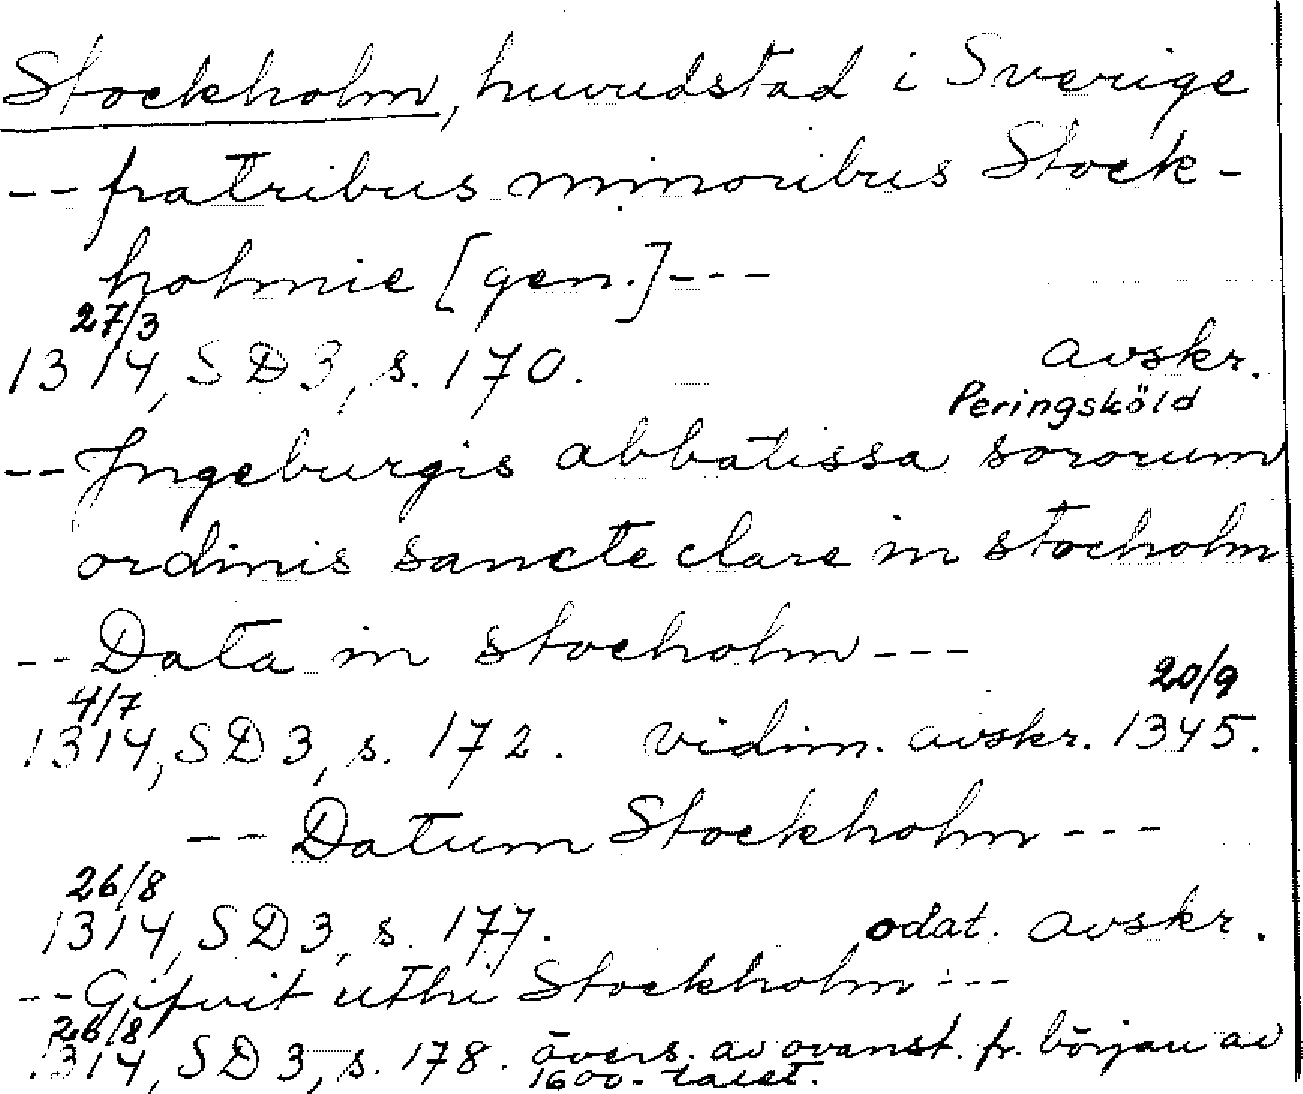 Stockholm, huvudstad i Sverige
-- fratribus minoribus Stock-
holmie [gen.]---
27/3
1314, SD 3, s. 170. avskr.
Peringsköld
-- Jngeburgis abbatissa sororum
ordinis sancte clare in stocholm
-- Data in stocholm ---
4/7 20/9
1314, SD 3, s. 172. vidim. avskr. 1345.
-- Datum Stockholm ---
26/8
1314, SD 3, s. 177. odat. avskr.
-- Gifuit uthi Stockholm ---
26/8
1314, SD 3, s. 178. övers. av ovanst. fr. början av
1600-talet.